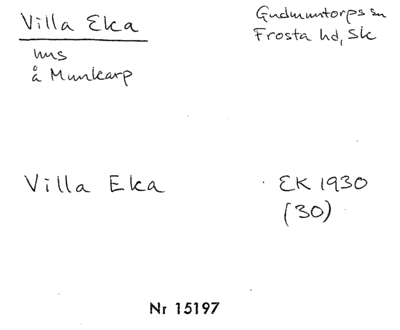 Villa Eka
Gudmuntorps sn
Frosta hd, Sk
hus
å Munkarp
Villa Eka
EK 1930
(30)
Nr 15197